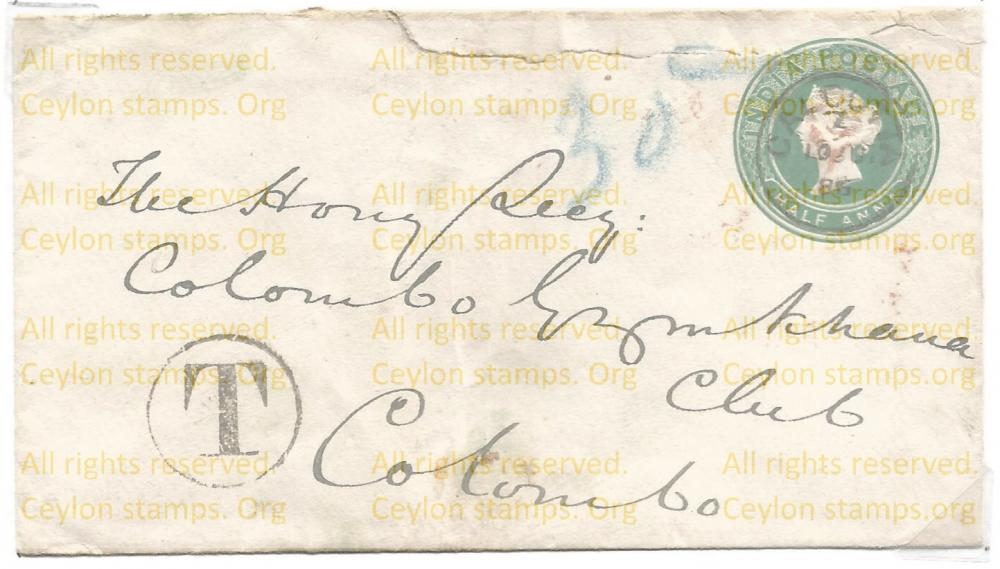 All rights reserved. All rights reserved. All rights reserved.
Ceylon stamps. Org Ceylon stamps. Org Ceylon stamps. Org
INDIA POSTAGE
HALF ANNA
30
The Hony Secy:
All rights reserved. All rights reserved. All rights reserved.
Ceylon stamps. Org Ceylon stamps. Org Ceylon stamps. org
Colombo Gymkhana
All rights reserved. All rights reserved. All rights reserved.
Ceylon stamps. Org Ceylon stamps. Org Ceylon stamps.org
Club
T
Colombo
All rights reserved. All rights reserved. All rights reserved.
Ceylon stamps. Org Ceylon stamps. Org Ceylon stamps. Org